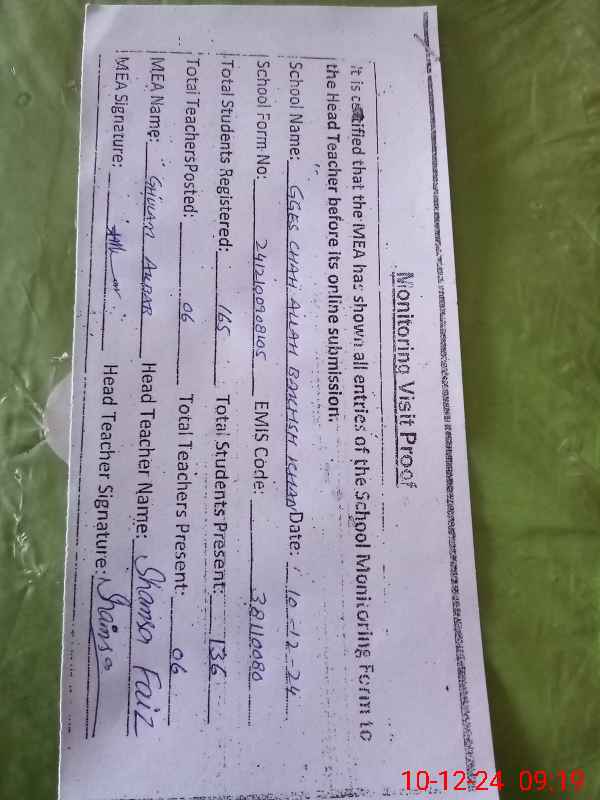 Monitoring Visit Proof
It is certified that the MEA has shown all entries of the School Monitoring Form to
the Head Teacher before its online submission.
School Name: GGES CHAH ALLAH BAKHSH KHAN Date: 10-12-24
School Form No: EMIS Code: 38110080
Total Students Registered: 165 Total Students Present: 136
Total Teachers Posted: 06 Total Teachers Present: 06
MEA Name: GHULAM AKBAR Head Teacher Name: Shamsa Faiz
MEA Signature: Head Teacher Signature: Shamsa
10-12-24 09:19